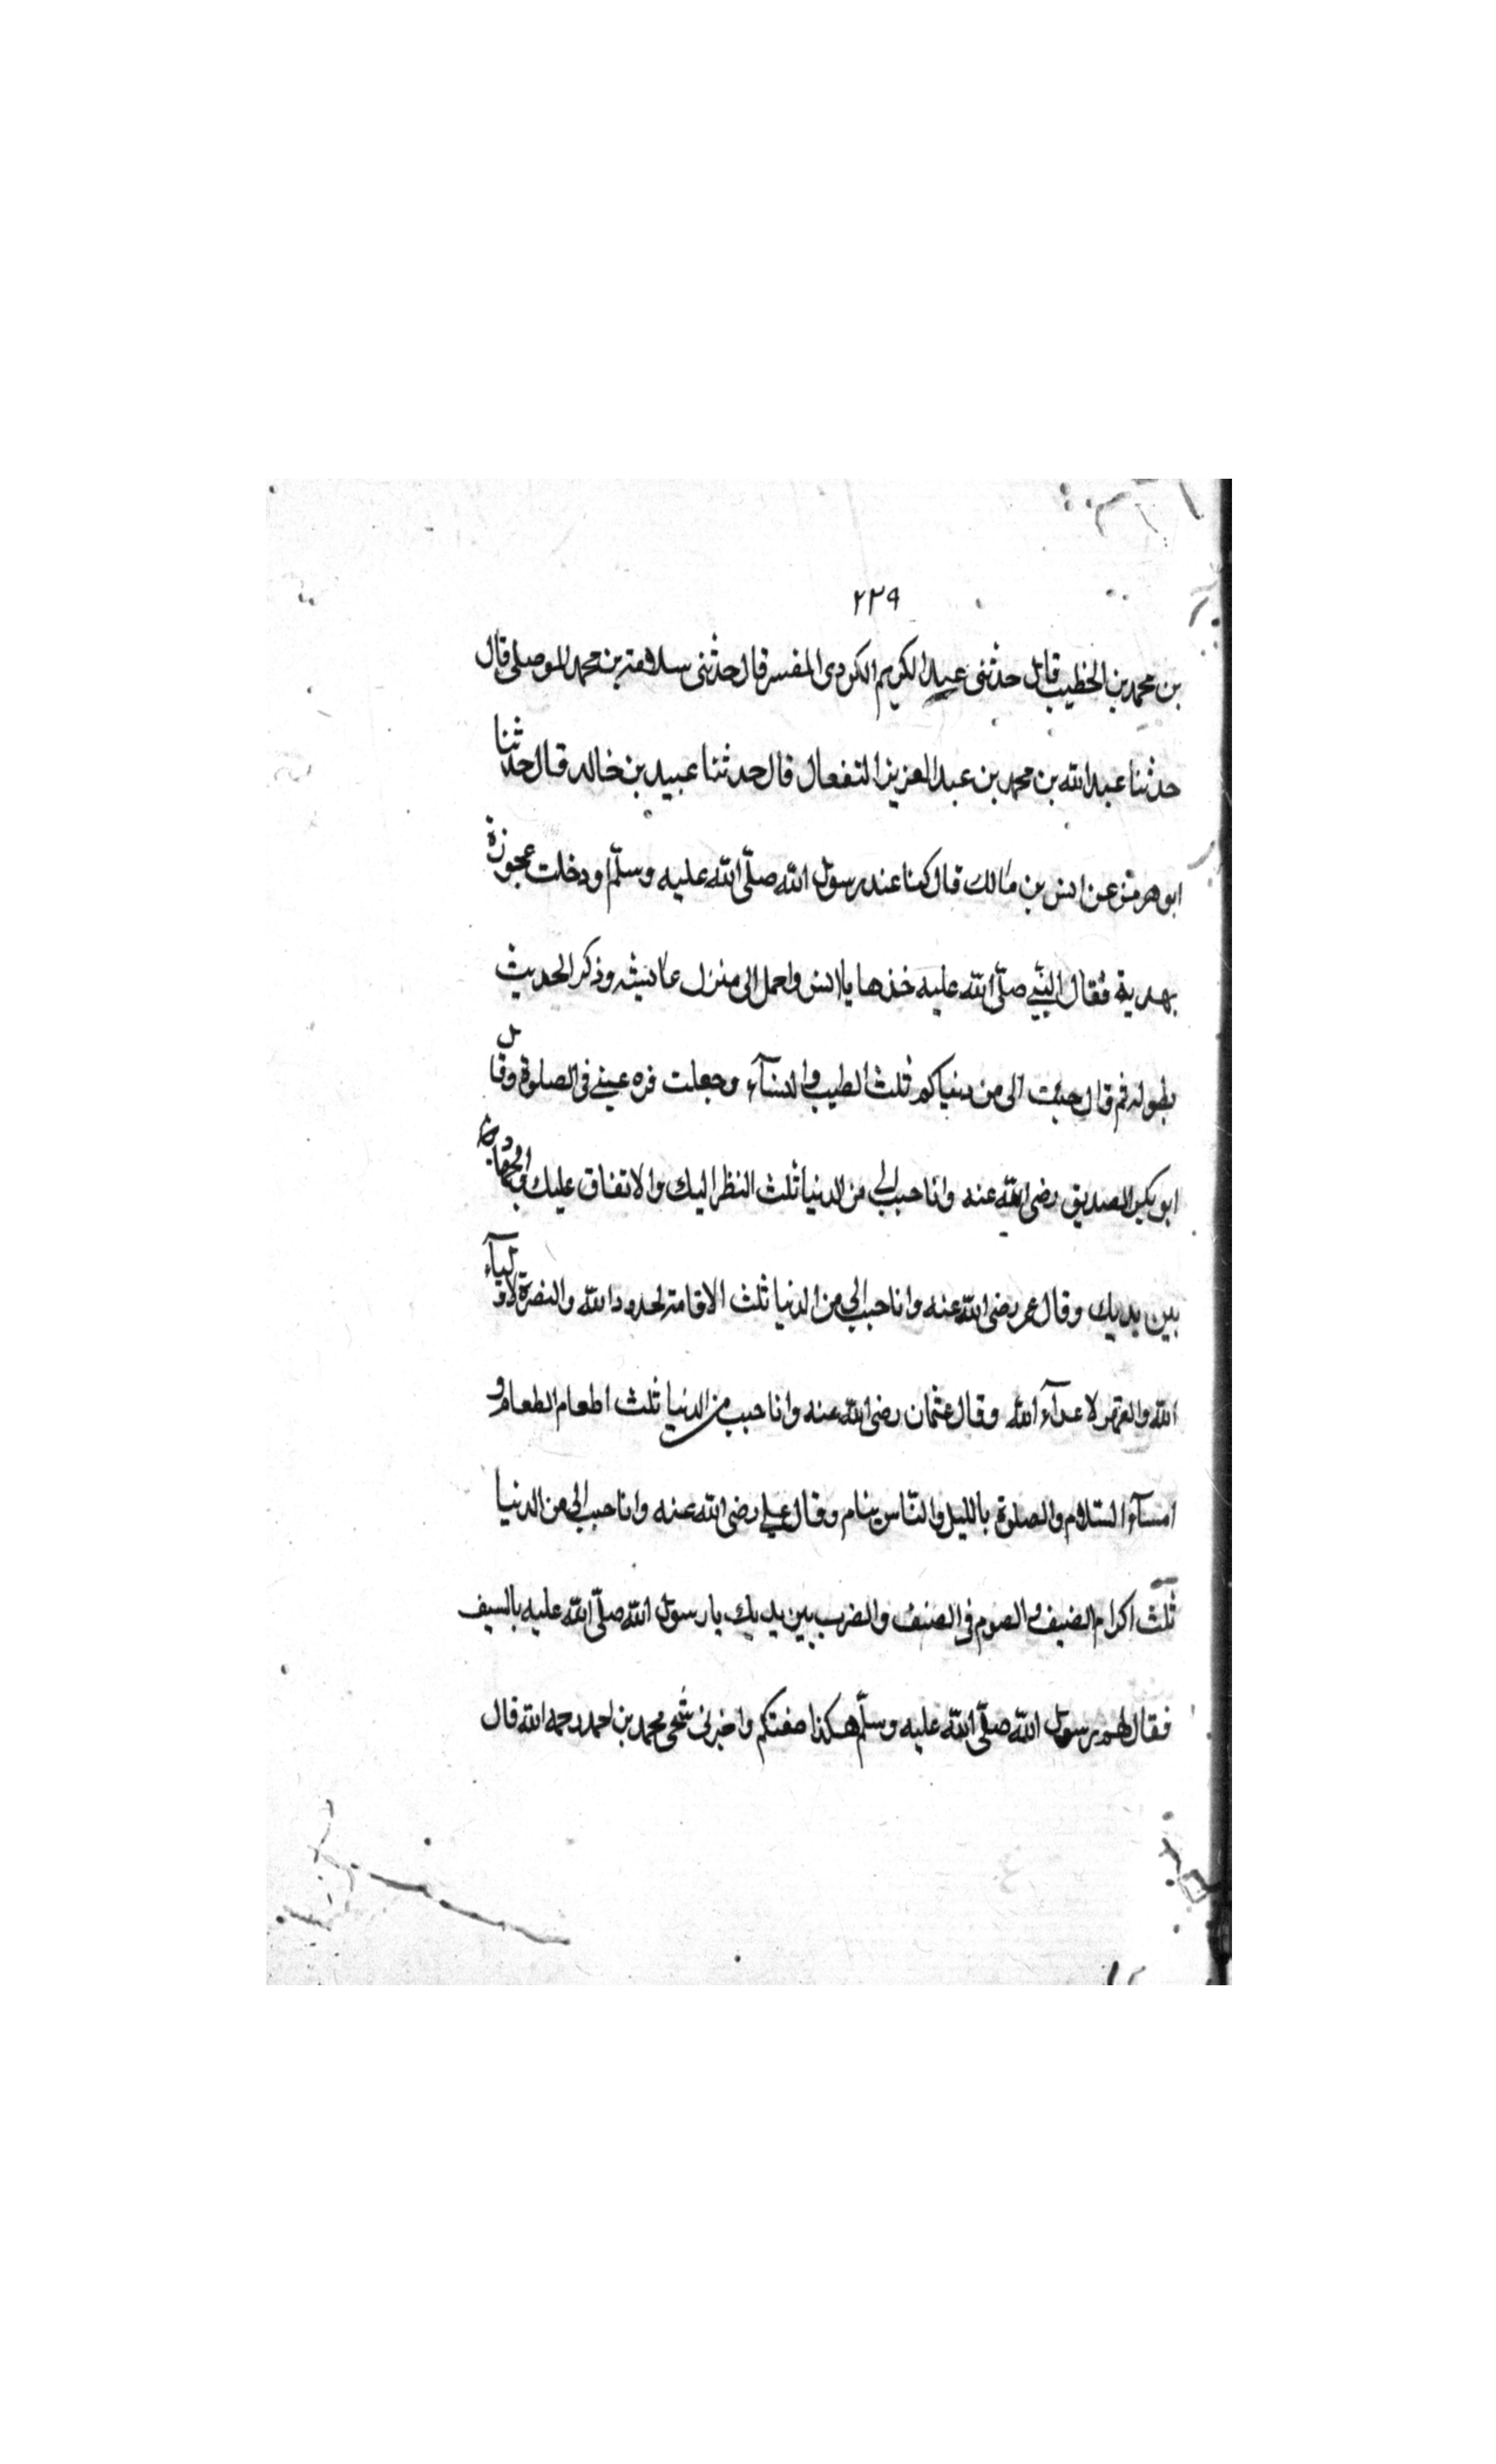 ٢٣٩
بن محمد بن الخطيب قال حدثنى عبد الكريم الكردى المفسر قال حدثنى سلامة بن محمد الموصلى قال
حدثنا عبد الله بن محمد بن عبد العزيز التفعال قال حدثنا عبيد بن خالد قال حدثنا
ابو هرمز عن انس بن مالك قال كنا عند رسول الله صلّى الله عليه وسلّم او دخلت عجوزة
بهدية فقال النّبي صلّى الله عليه خذها يا انس واحمل الى منزل عائيشه وذكر الحديث
بطوله ثم قال حببت الى من دنياكم ثلث الطيب والنسآء وجعلت قره عيني فى الصلوة وقال
ابو بكر الصديق رضى الله عنه وانا حبب الى من الدنيا ثلث النظر اليك والانفاق عليك والجهاد
بين يديك وقال عمر رضى الله عنه وانا حبب الي من الدنيا ثلث الاقامة لحدود الله والنصرة لاوليآء
الله والقهر لاعدآء الله وقال عثمان رضى الله عنه وانا حبب من الدنيا ثلث اطعام الطعام و
افشآء السّلام والصلوة بالليل والنّاس ينام وقال علي رضى الله عنه وانا حبب الي من الدنيا
ثلث اكرام الضيف والصوم فى الصيف والضرب بين يديك يا رسول الله صلّى الله عليه بالسيف
فقال لهم رسول الله صلّى الله عليه وسلّم هكذا صفتكم واخبرنى شيخى محمد بن احمد رحمه الله قال